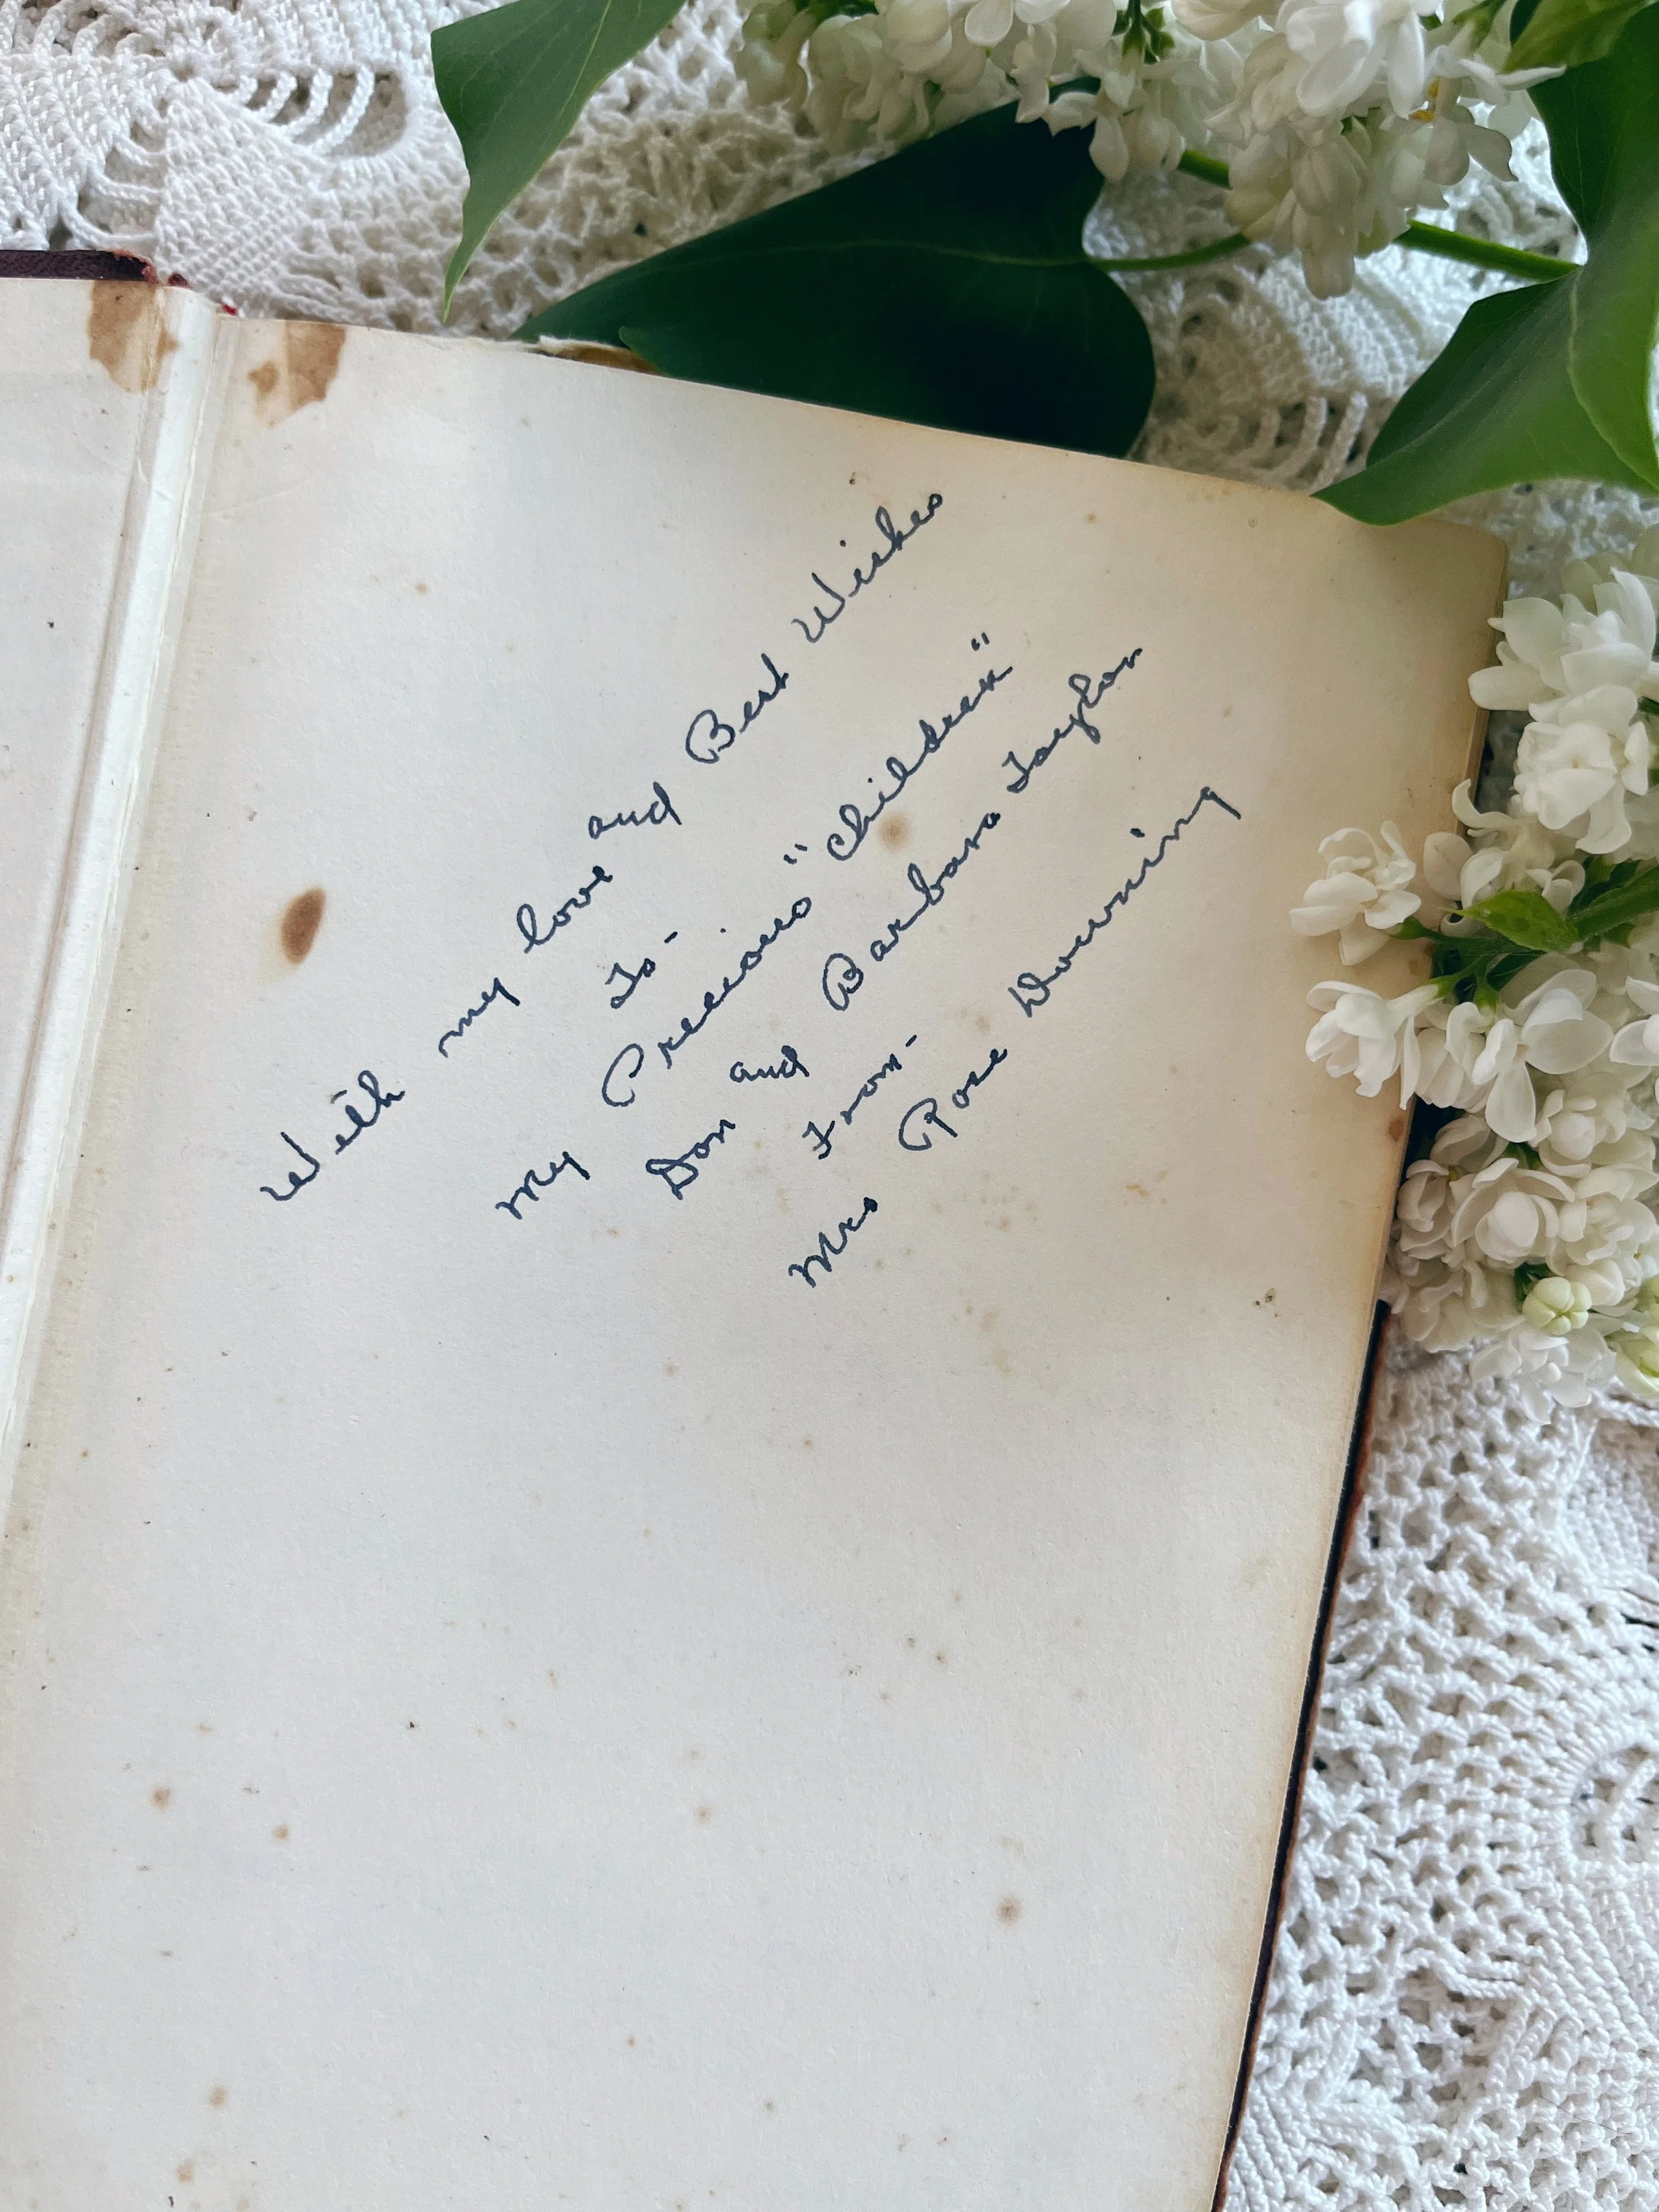 With my love and Best Wishes
To-
My Precious "Children"
Don and Barbara Taylor
From-
Mrs Rose Downing